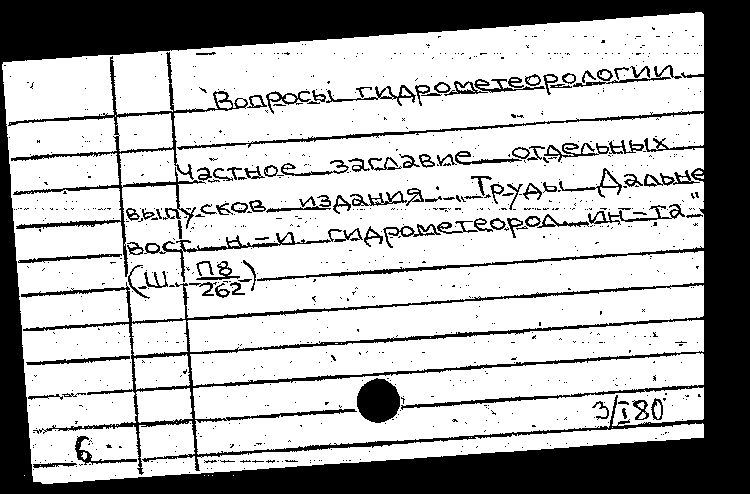 Вопросы гидрометеорологии.
Частное заглавие отдельных
выпусков издания: „Труды Дальне
вост. н.-и. гидрометеорол. ин-та“.
(Ш П8/262)
3/I80
6